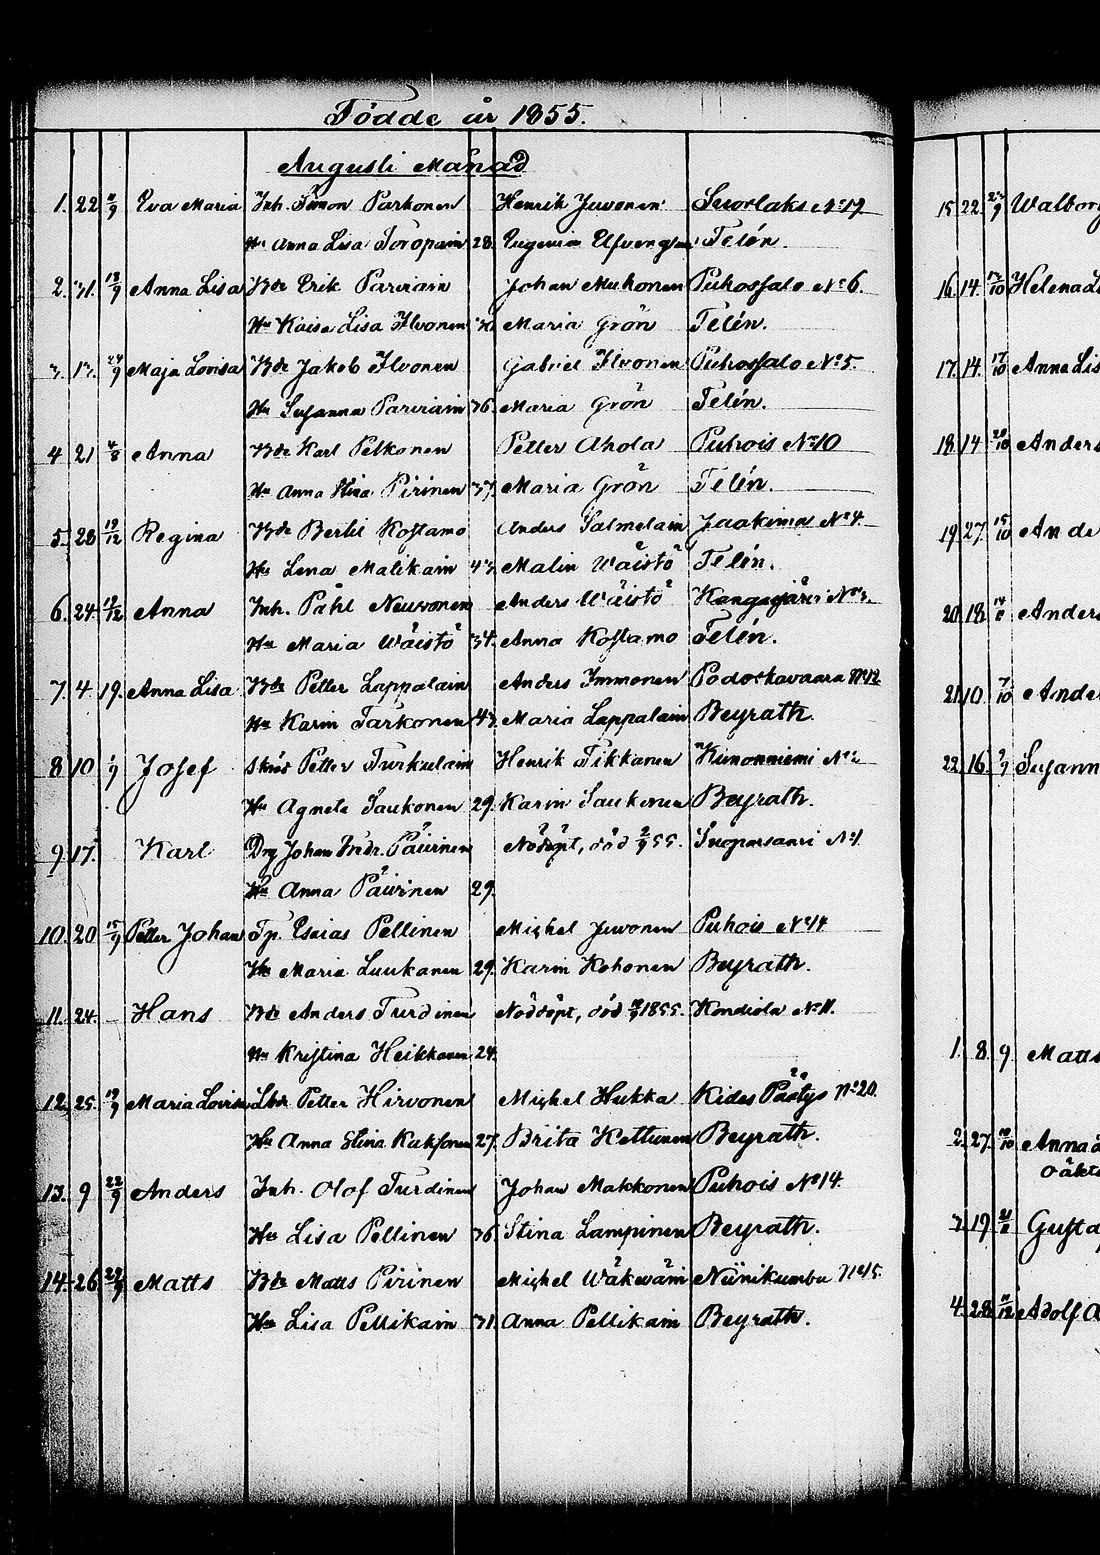 Födde år 1855.
Augusti Månad
1. 22 2/9 Eva Maria Inh. Simon Parkonen Henrik Juvonen Suorlaks No 19
Hu Anna Lisa Toropain 28. Eugenia Telén.
2. 31. 12/9 Anna Lisa Bde Erik Parviain Johan Muhonen Puhossalo No 6.
Hu Kaisa Lisa Ilvonen 30 Maria Grön Telén.
3. 13. 24/9 Maja Lovisa Bde Jakob Ilvonen Gabriel Ilvonen Puhossalo No 5.
Hu Susanna Parviain 36. Maria Grön Telén.
4 21 Anna Bde Karl Pelkonen Petter Ahola Puhois No 10
Hu Anna Stina Pirinen 37. Maria Grön Telén.
5. 28 19/12 Regina Bde Bertil Kossamo Anders Salmelain Jaakima No 4.
Hu Lena Malikain 43. Malin Wäistö Telén.
6. 24. 19/12 Anna Inh. Påhl Neuvonen Anders Wäistö Kangasjärvi No 3.
Hu Maria Wäistö 34. Anna Kossamo Telén.
7. 4 19. Anna Lisa Bde Petter Lappalain Anders Immonen Podoskavaara No 12
Hu Karin Tarkonen 43. Maria Lappalain Beyrath.
8 10 1/9 Josef Petter Turkulain Henrik Tikkanen Kunonniemi No 2
Hu Agneta Saukonen 29. Karin Saukonen Beyrath.
9 17. Karl Drg Johan Fridr. Päivinen Nödöpt, död 2/9 55. No 1.
Hu Anna Päivinen 29.
10. 20 15/9 Petter Johan Tp. Esaias Pellinen Mighel Juvonen Puhois No 14
Hu Maria Luukanen 29. Karin Kohonen Beyrath.
11. 24. Hans Bde Anders Turdinen Nöddöpt, död 1855. Kondiola No 11.
Hu Kristina Heikkanen 24.
12. 25. 19/9 Maria Lovisa Lbde Petter Hirvonen Mighel Hukka Kides Päätys No 20.
Hu Anna Stina Kaksonen 27. Brita Kettunen Beyrath.
13. 9 22/9 Anders Inh. Olof Turdinen Johan Makkonen Puhois No 14.
Hu Lisa Pellinen 36. Stina Lampinen Beyrath.
14. 26 29/9 Matts Bde Matts Pirinen Mighel Wäkeväin Niinikumbu No 45.
Hu Lisa Pellikain 31. Anna Pellikain Beyrath.
15. 22. Walborg
16. 14. Helena L
17. 14. 17/10 Anna Lis
18. 14 20/10 Anders
19. 27. 15/10 Ande
20. 18 Anders
21. 10. 7/10 Ande
22. 16. Susann
1. 8. 9 Matts
2. 27. Anna
oäkt
3. 19. Gusta
4. 28 Adolf A